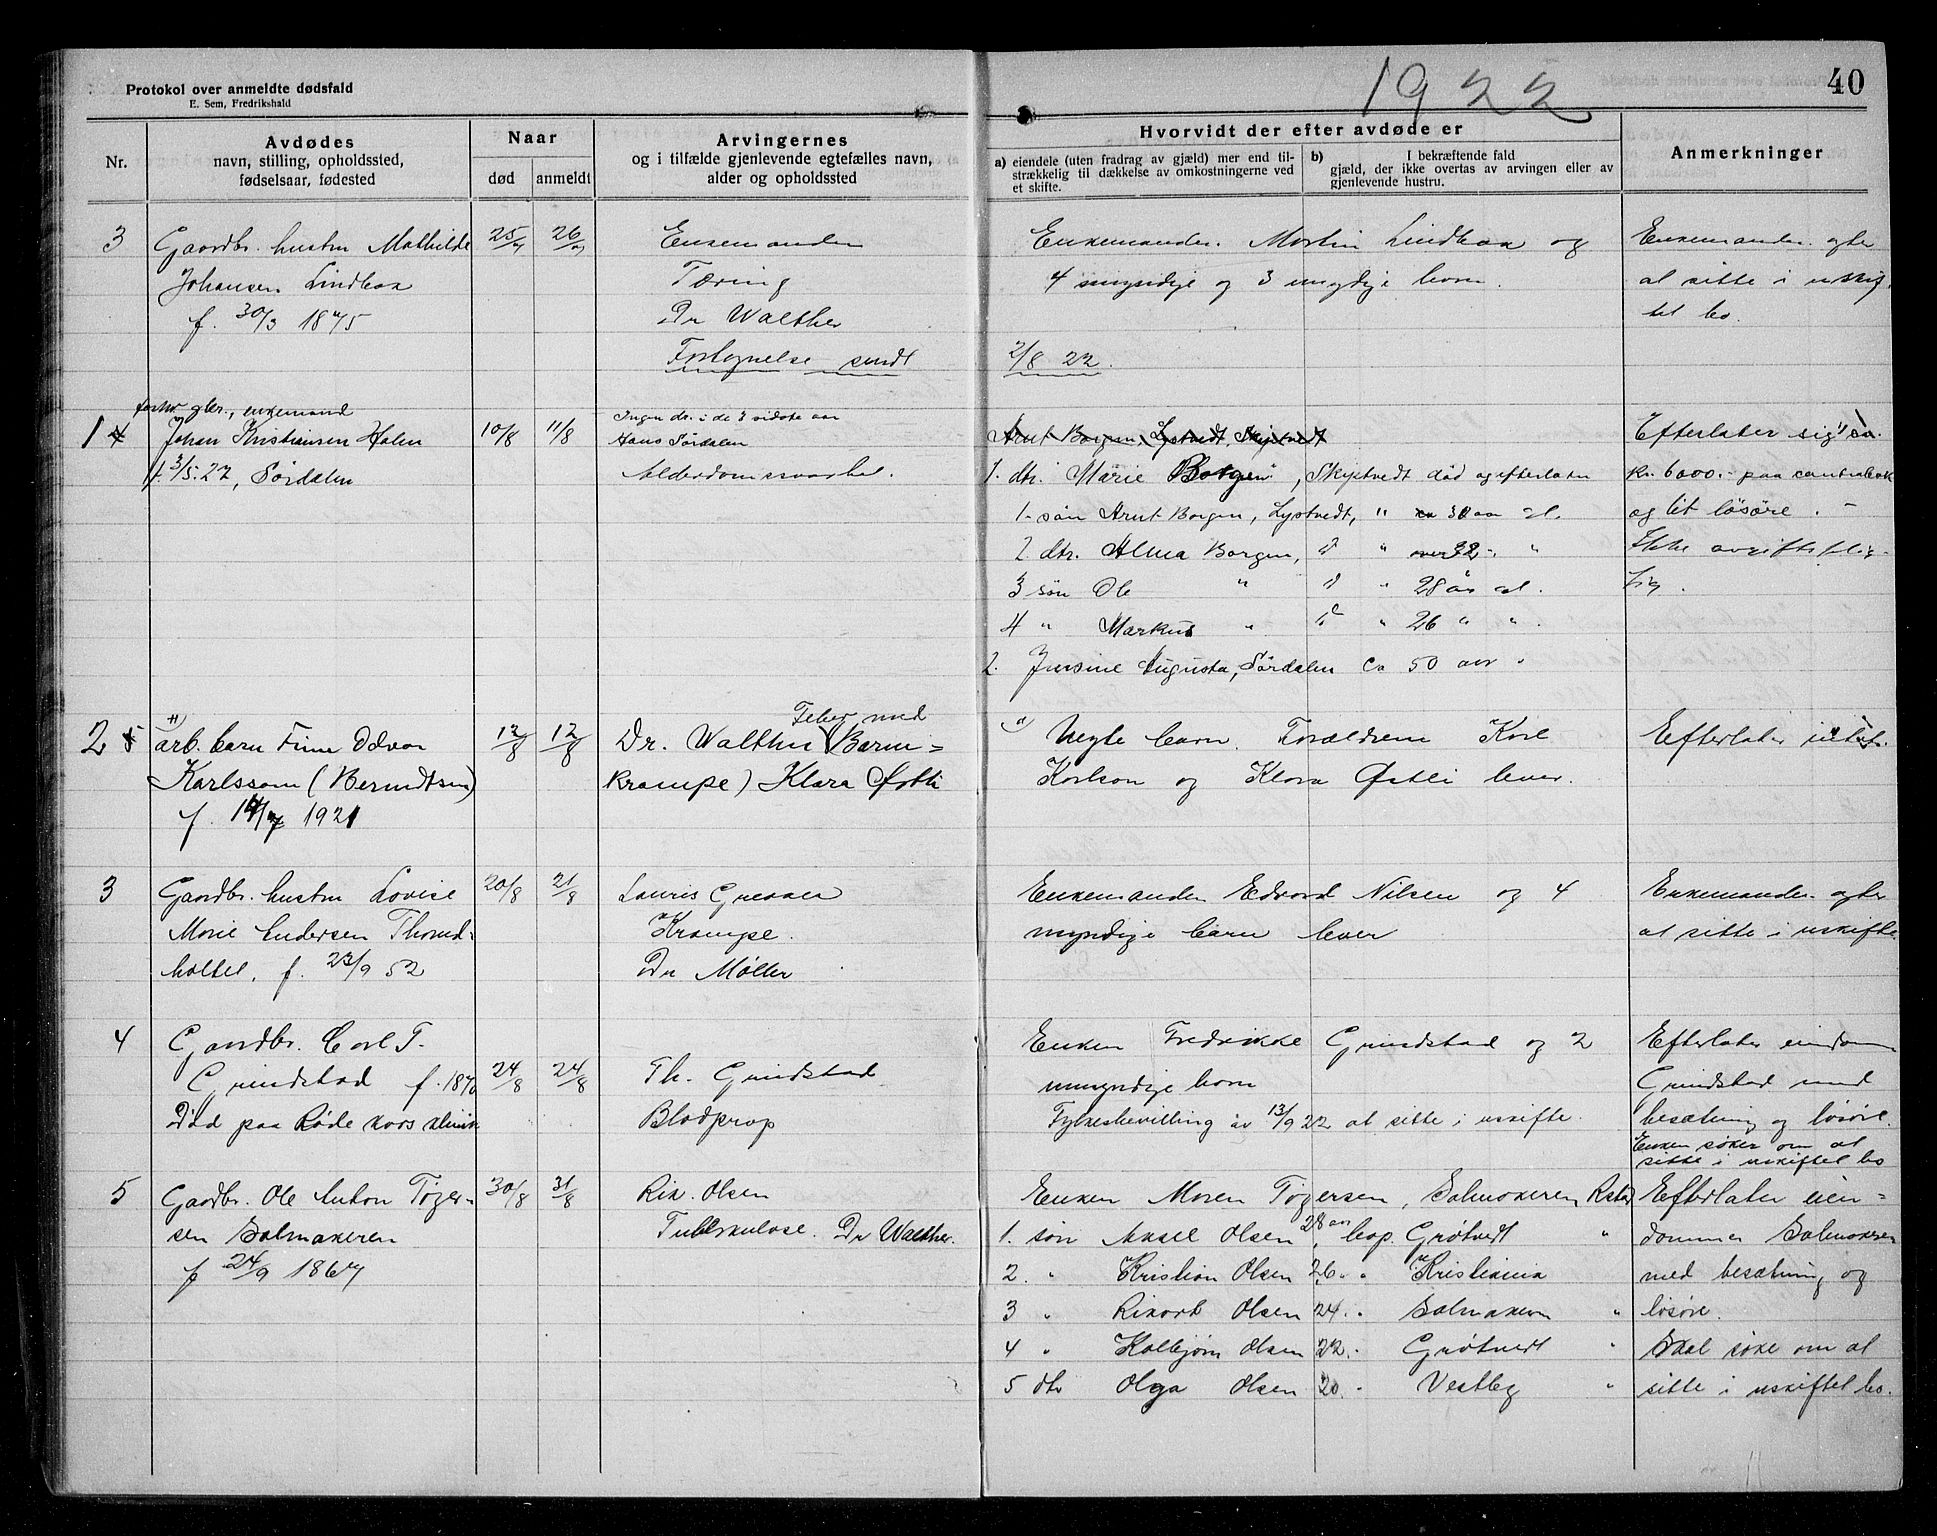 Protokol over anmeldte dødsfald
E. Sem, Fredrikshald
1922
40
Nr.
Avdødes
navn, stilling, opholdssted,
fødselsaar, fødested
Naar
død
anmeldt
Arvingernes
og i tilfælde gjenlevende egtefælles navn,
alder og opholdssted
Hvorvidt der efter avdøde er
a) eiendele (uten fradrag av gjæld) mer end til-
strækkelig til dækkelse av omkostningerne ved
et skifte.
b) I bekræftende fald
gjæld, der ikke overtas av arvingen eller av
gjenlevende hustru.
Anmerkninger
3
Gaardbr. hustru Mathilde
Johansen Lindbak
f. 30/3 1875
25/7
26/7
Enkemanden
Tæring
Dr Walther
Fortegnelse sendt
Enkemanden Martin Lindbak og
4 myndige og 3 umydige born.
2/8 22.
Enkemanden agter
at sitte i uskif
tet bo.
1
forhv. gbr., enkemand
Johan Kristiansen Holen
f. 3/5.27, Sørdalen
10/8
11/8
Ingen dr. i de 3 sidste aar
Hans Sørdalen
Alderdomssvakhet.
Arnt Borgen, Lystvedt, Skiptvedt
1. dtr. Marie Borgen, Skiptvedt død og efterlater
1. søn Arnt Borgen, Lystvedt, " 30 aar gl.
2. dtr. Alma Borgen, " " over 32 " "
3 søn Ole " " " 28 år gl.
4 " Markus " " " 26 " "
2. Jursine Augusta, Sørdalen ca 50 aar "
Efterlater sig ca.
kr. 6000.- paa centralbank
og lit løsøre. -
Ikke avgiftsplig-
tig.
2
arb. barn Finn Odvar
Karlsson (Berndtsen)
f. 14/7 1921
12/8
12/8
Dr. Walther (Feber med Barn-
krampe) Klara Østli
Uegte barn. Forældrene Karl
Karlson og Klara Østli lever.
Efterlater intet.
3
Gaardbr. hustru Lovise
Marie Andersen Thored-
holtet, f. 23/9 52
20/8
21/8
Lauris
Krampe.
Dr Møller
Enkemanden Edvard Nilsen og 4
myndige barn lever
Enkemanden agter
at sitte i uskifte.
4
Gaardbr. Carl T.
Grindstad f. 1870
Død paa Røde kors klinik
24/8
24/8
Th. Grindstad
Blodprop
Enken Fredrikke Grindstad og 2
umyndige born
Fylkesbevilling av 13/9 22 at sitte i uskifte.
Efterlater eiendom
Grindstad med
besætning og løsøre.
Enken søker om at
sitte i uskiftet bo
5
Gaardbr. Ole Anton Tøger-
sen Salmakeren
f 24/9 1867
30/8
31/8
Rik. Olsen
Tuberkulose. Dr Walther.
Enken Maren Tøgersen, Salmakeren, Rstad
1. søn Aksel Olsen 28 aar, bop. Grøtvedt "
2. " Kristian Olsen 26 " " Kristiania
3 " Rikart Olsen 24 " " Salmakern "
4 " Kolbjørn Olsen 22 " Grøtvedt "
5 dtr Olga Olsen 20 " Vestby "
Efterlater eien-
dommen Salmakeren
med besætning og
løsøre.
Skal søke om at
sitte i uskiftet bo.